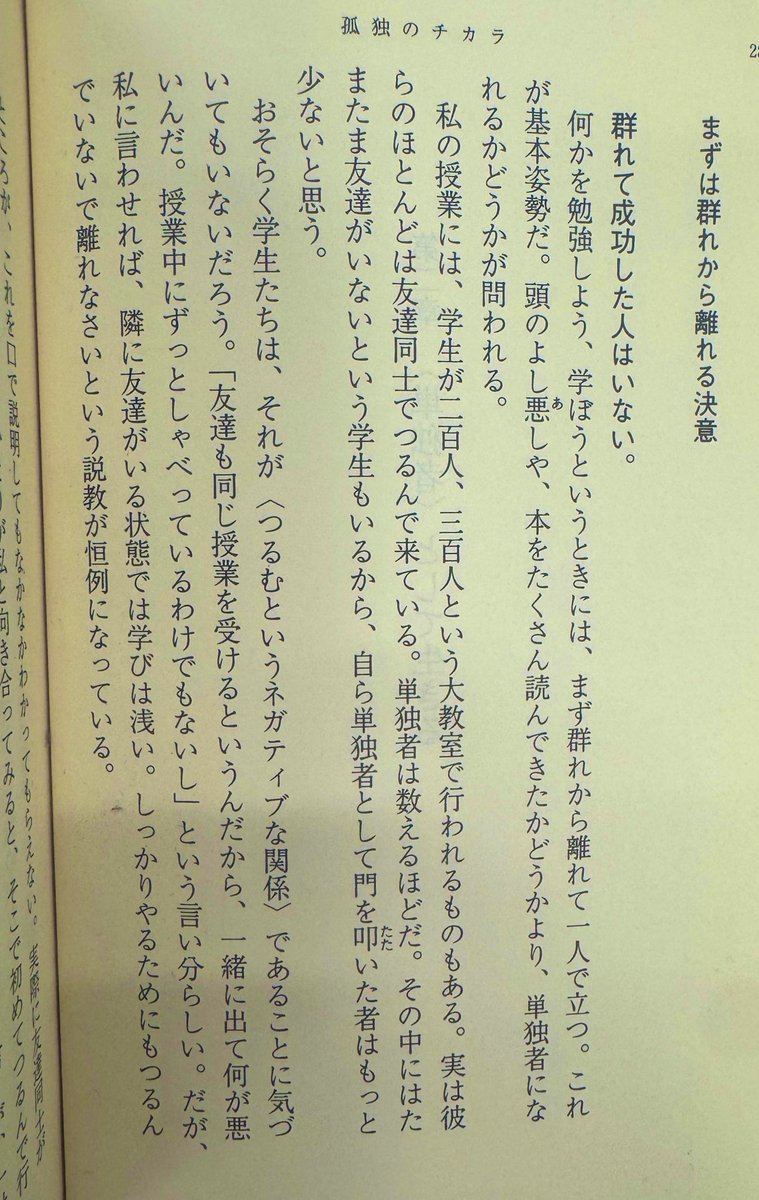 孤独のチカラ
まずは群れから離れる決意
群れて成功した人はいない。
何かを勉強しよう、学ぼうというときには、まず群れから離れて一人で立つ。これ
が基本姿勢だ。頭のよし悪しや、本をたくさん読んできたかどうかより、単独者にな
れるかどうかが問われる。
私の授業には、学生が二百人、三百人という大教室で行われるものもある。実は彼
らのほとんどは友達同士でつるんで来ている。単独者は数えるほどだ。その中にはた
またま友達がいないという学生もいるから、自ら単独者として門を叩いた者はもっと
少ないと思う。
おそらく学生たちは、それが〈つるむというネガティブな関係〉であることに気づ
いてもいないだろう。「友達も同じ授業を受けるというんだから、一緒に出て何が悪
いんだ。授業中にずっとしゃべっているわけでもないし」という言い分らしい。だが、
私に言わせれば、隣に友達がいる状態では学びは浅い。しっかりやるためにもつるん
でいないで離れなさいという説教が恒例になっている。
これを口で説明してもなかなかわかってもらえない。実際に友達同士が
私と向き合ってみると、そこで初めてつるんで行